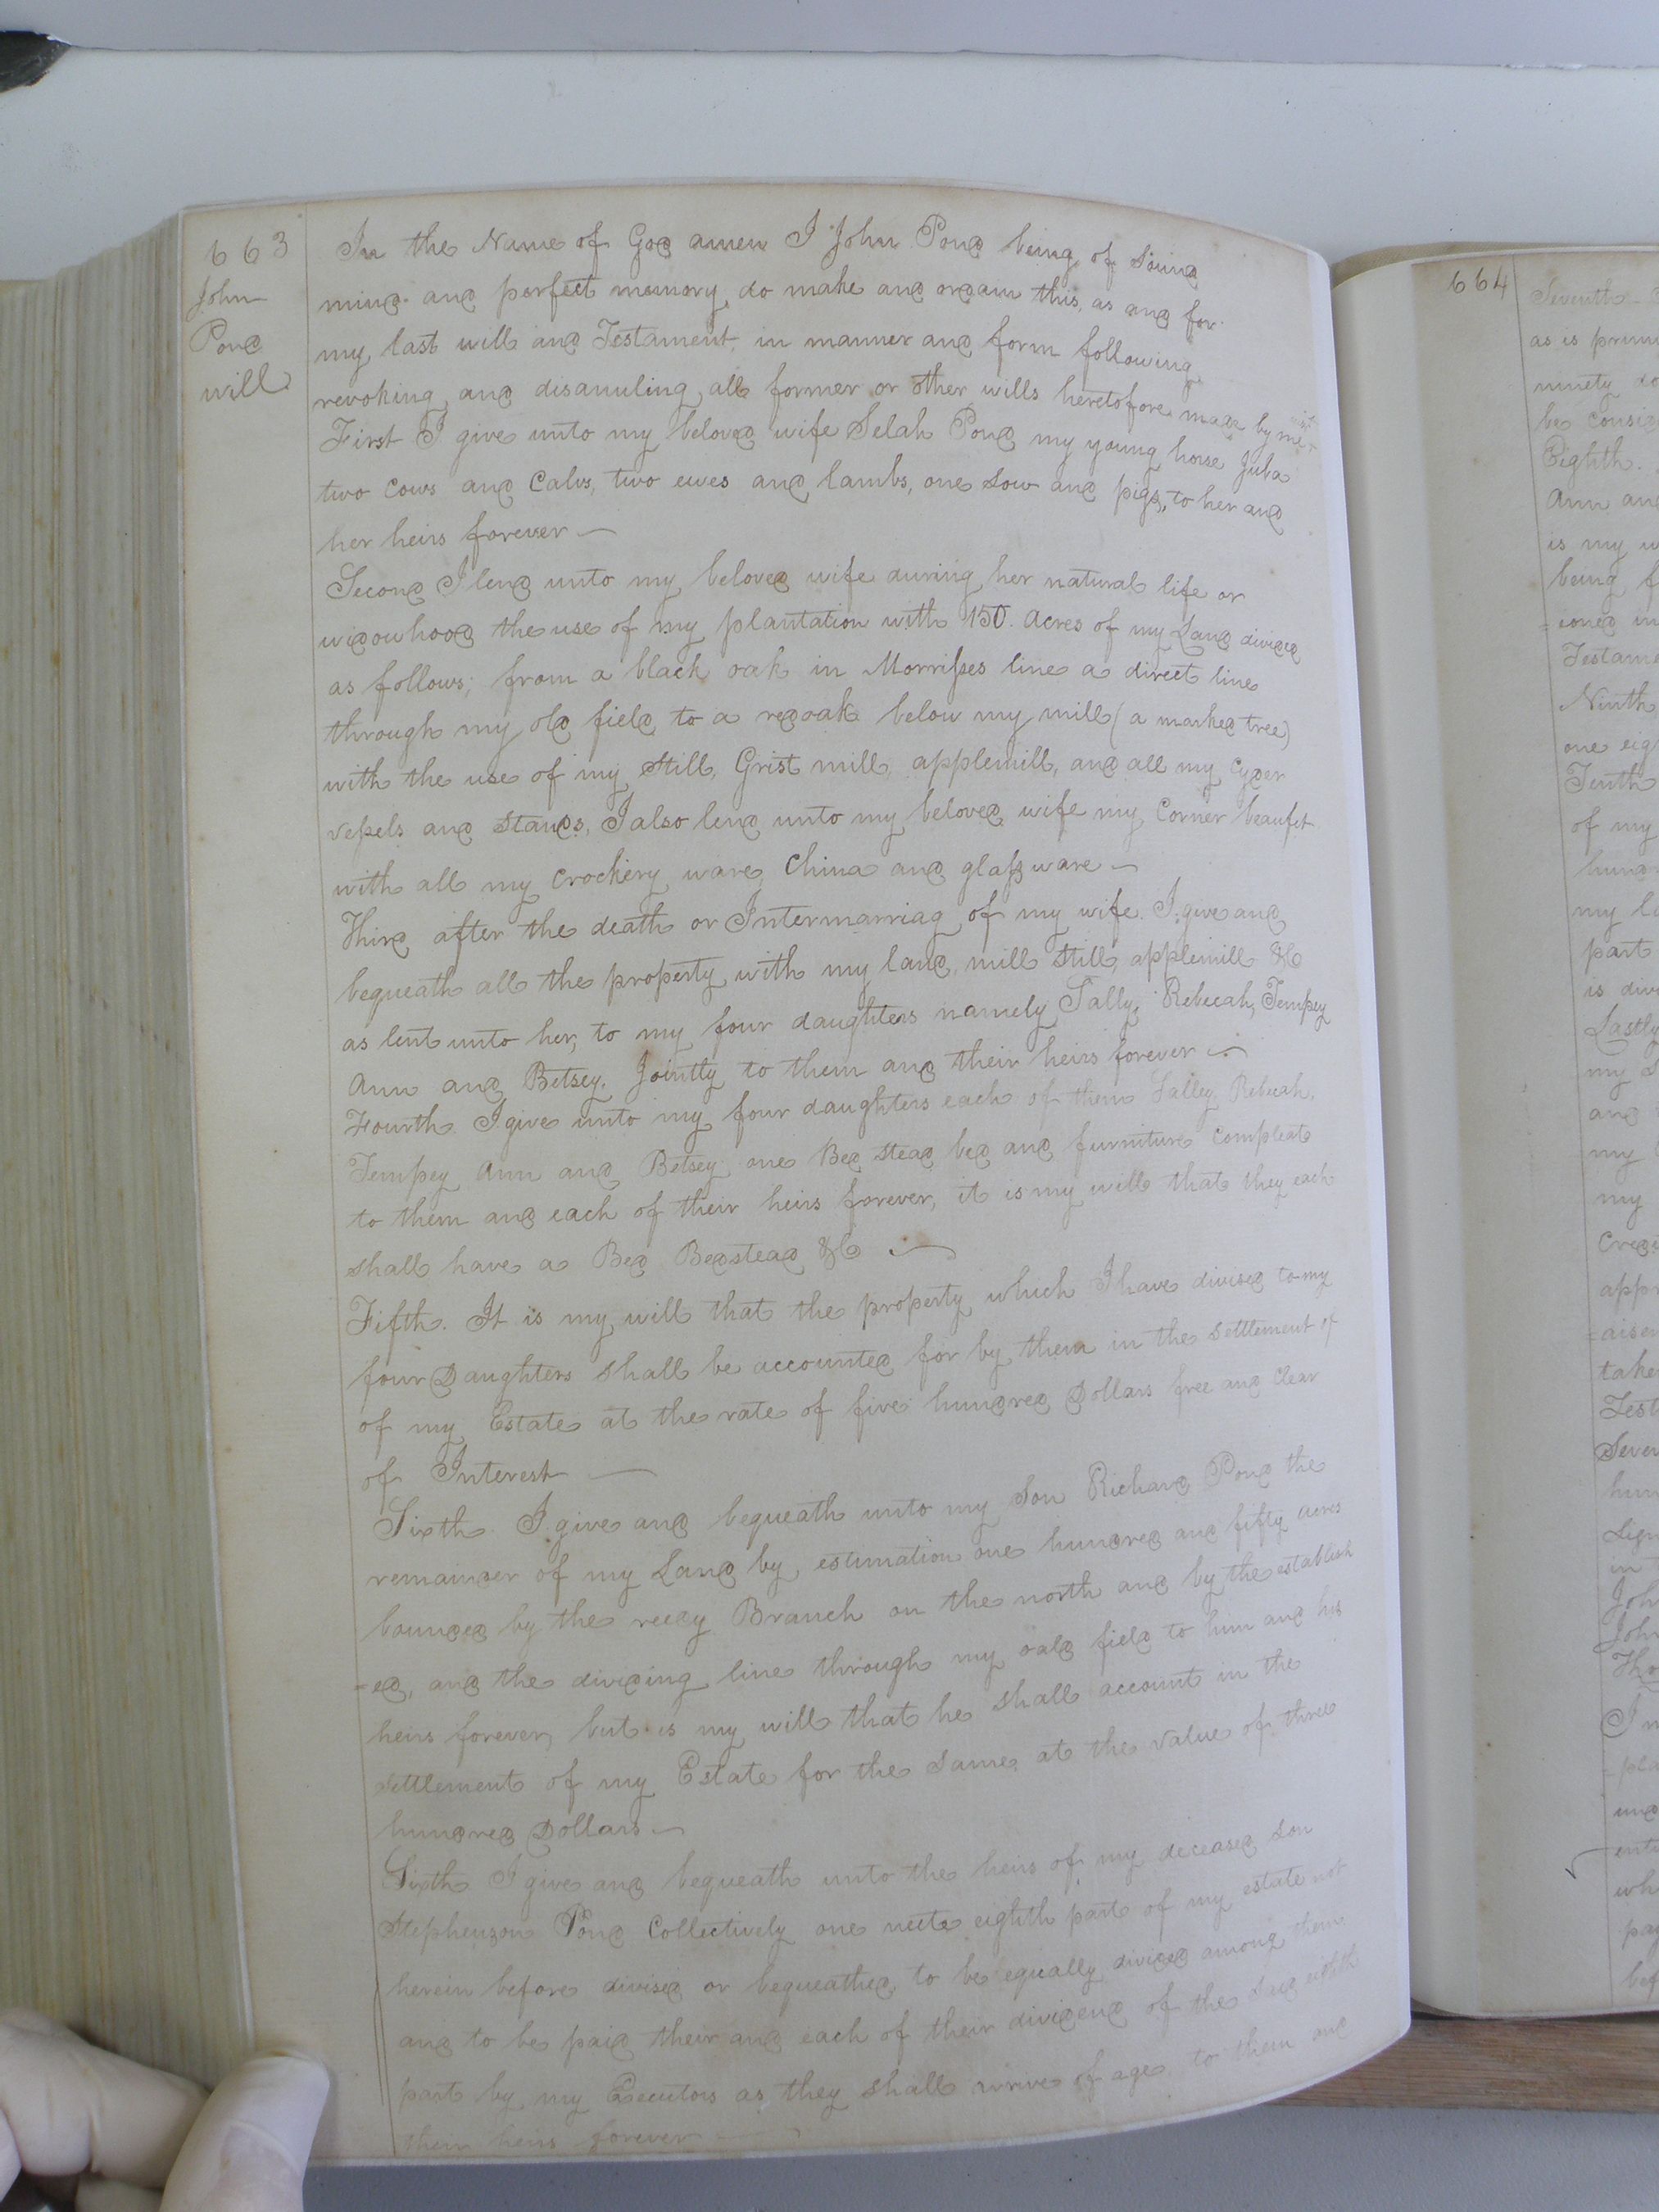 663
John
Pond
will
In the Name of God amen I John Pond being of Sound
mind and perfect memory do make and ordain this, as and for
my last will and Testament, in manner and form following
revoking and disanuling all former or other wills heretofore made by me
First I give unto my beloved wife Selah Pond my young horse Juba
two Cows and Calvs, two ewes and lambs, one Sow and pigs, to her and
her heirs forever —
Second I lend unto my beloved wife during her natural life or
widowhood the use of my plantation with 150. acres of my Land divided
as follows; from a black oak in Morrisses line a direct line
through my old field to a redoak below my mill (a marked tree)
with the use of my Still, Grist mill, applemill, and all my Cyder
vessels and Stands, I also lend unto my beloved wife my Corner beaufet
with all my Crockery ware, China and glass ware —
Third after the death or Intermarriag of my wife. I give and
bequeath all the property with my land, mill Still, applemill &c
as lent unto her, to my four daughters namely Sally, Rebecah, Tempey
Ann and Betsey. Jointly to them and their heirs forever —
Fourth. I give unto my four daughters each of them Salley Rebecah,
Tempey Ann and Betsey one Bed Stead bed and furniture Compleat
to them and each of their heirs forever, it is my will that they each
shall have a Bed Bedstead &c —
Fifth. It is my will that the property which I have divised to my
four Daughters Shall be accounted for by them in the Settlement of
of my Estate at the rate of five hundred Dollars free and Clear
of Interest —
Sixth. I give and bequeath unto my Son Richard Pond the
remainder of my Land by estimation one hundred and fifty acres
bounded by the reedy Branch on the north and by the establish
=ed, and the dividing line through my oald field to him and his
heirs forever, but is my will that he Shall account in the
Settlement of my Estate for the Same, at the value of three
hundred Dollars —
Sixth I give and bequeath unto the heirs of my deceased Son
Stephenson Pond Collectively one eighth part of my estate not
herein before divised or bequeathed, to be equally divided among them
and to be paid their and each of their dividend of the Said eighth
part by my Executors as they Shall arrive of age to them and
their heirs forever —
664
Seventh
as is
ninety
be
Eighth.
Ann and
is my
being
=ioned
Testame
Ninth
one eig
Tenth
of my
my
part
is div
Lastly
my
and
my
my
appr
take
Test
Seven
hun
in
John
John
I